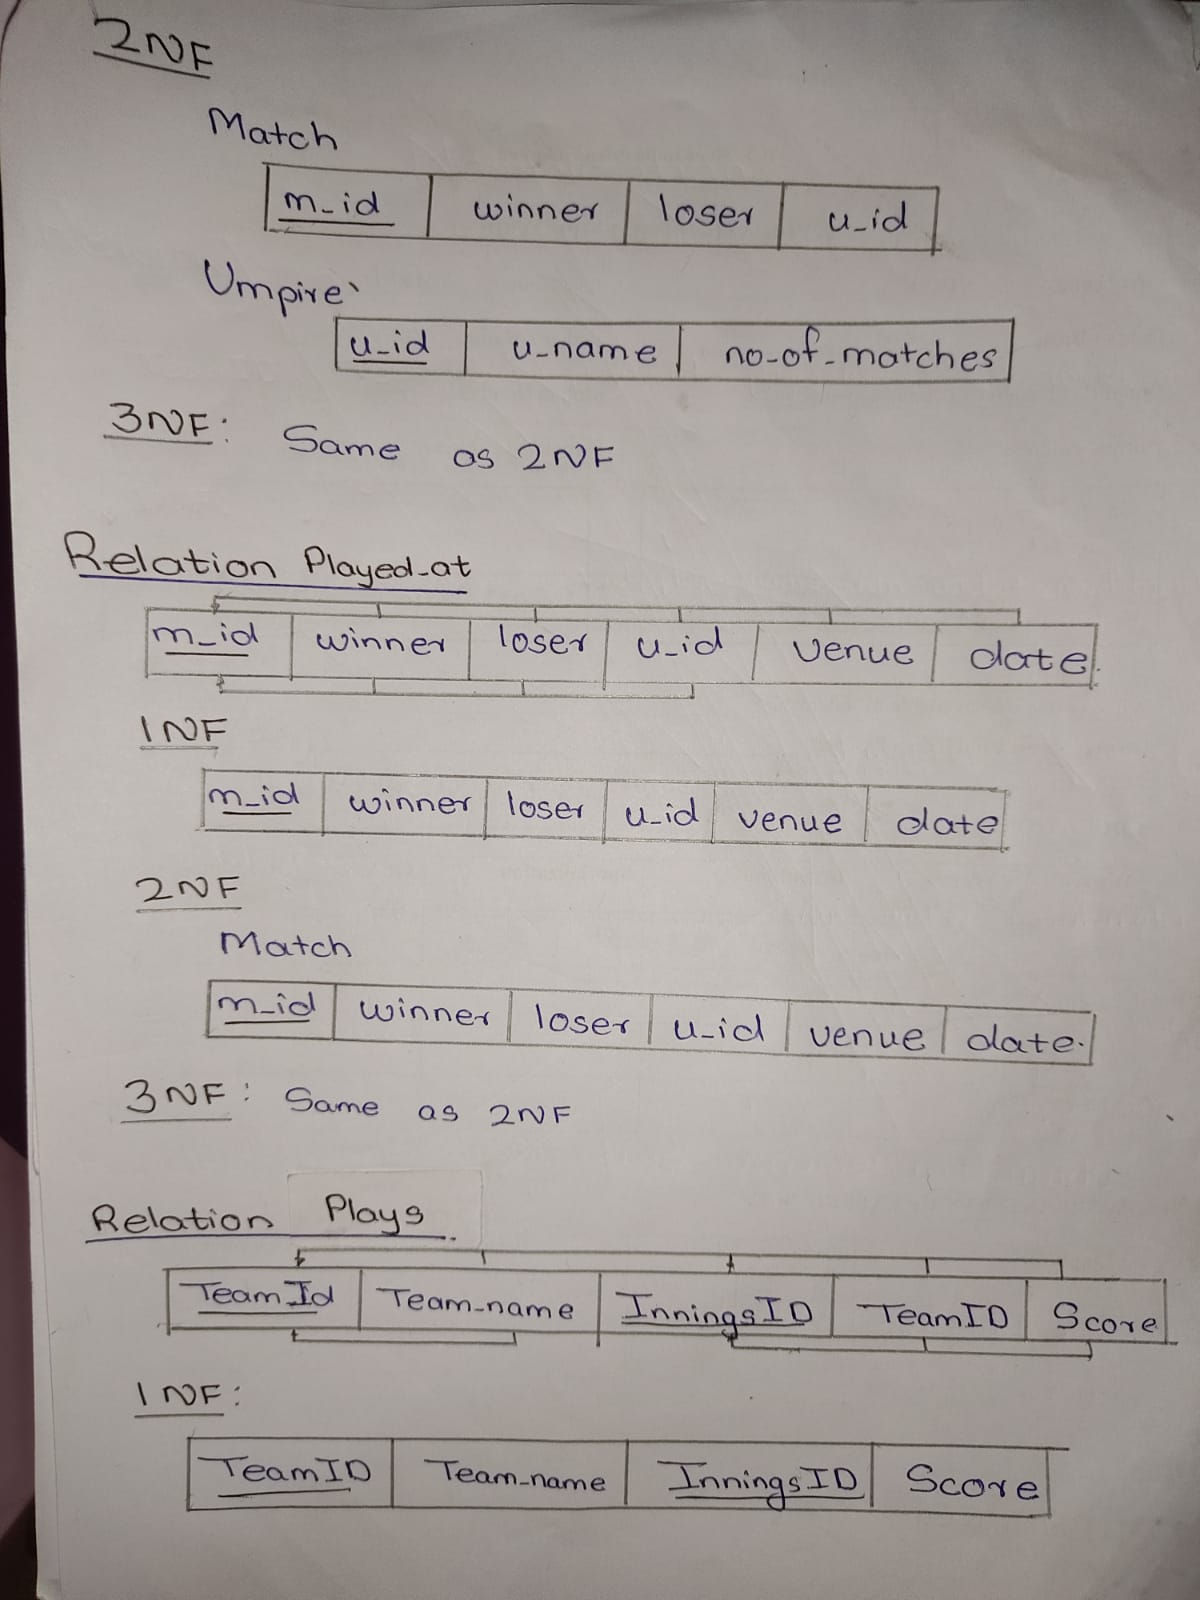 2NF
Match
m_id winner loser u_id
Umpire
u_id u_name no_of_matches
3NF: Same as 2NF
Relation Played_at
m_id winner loser u_id venue date
1NF
m_id winner loser u_id venue date
2NF
Match
m_id winner loser u_id venue date.
3NF: Same as 2NF
Relation Plays
TeamId Team_name InningsID TeamID Score
1NF:
TeamID Team_name InningsID Score